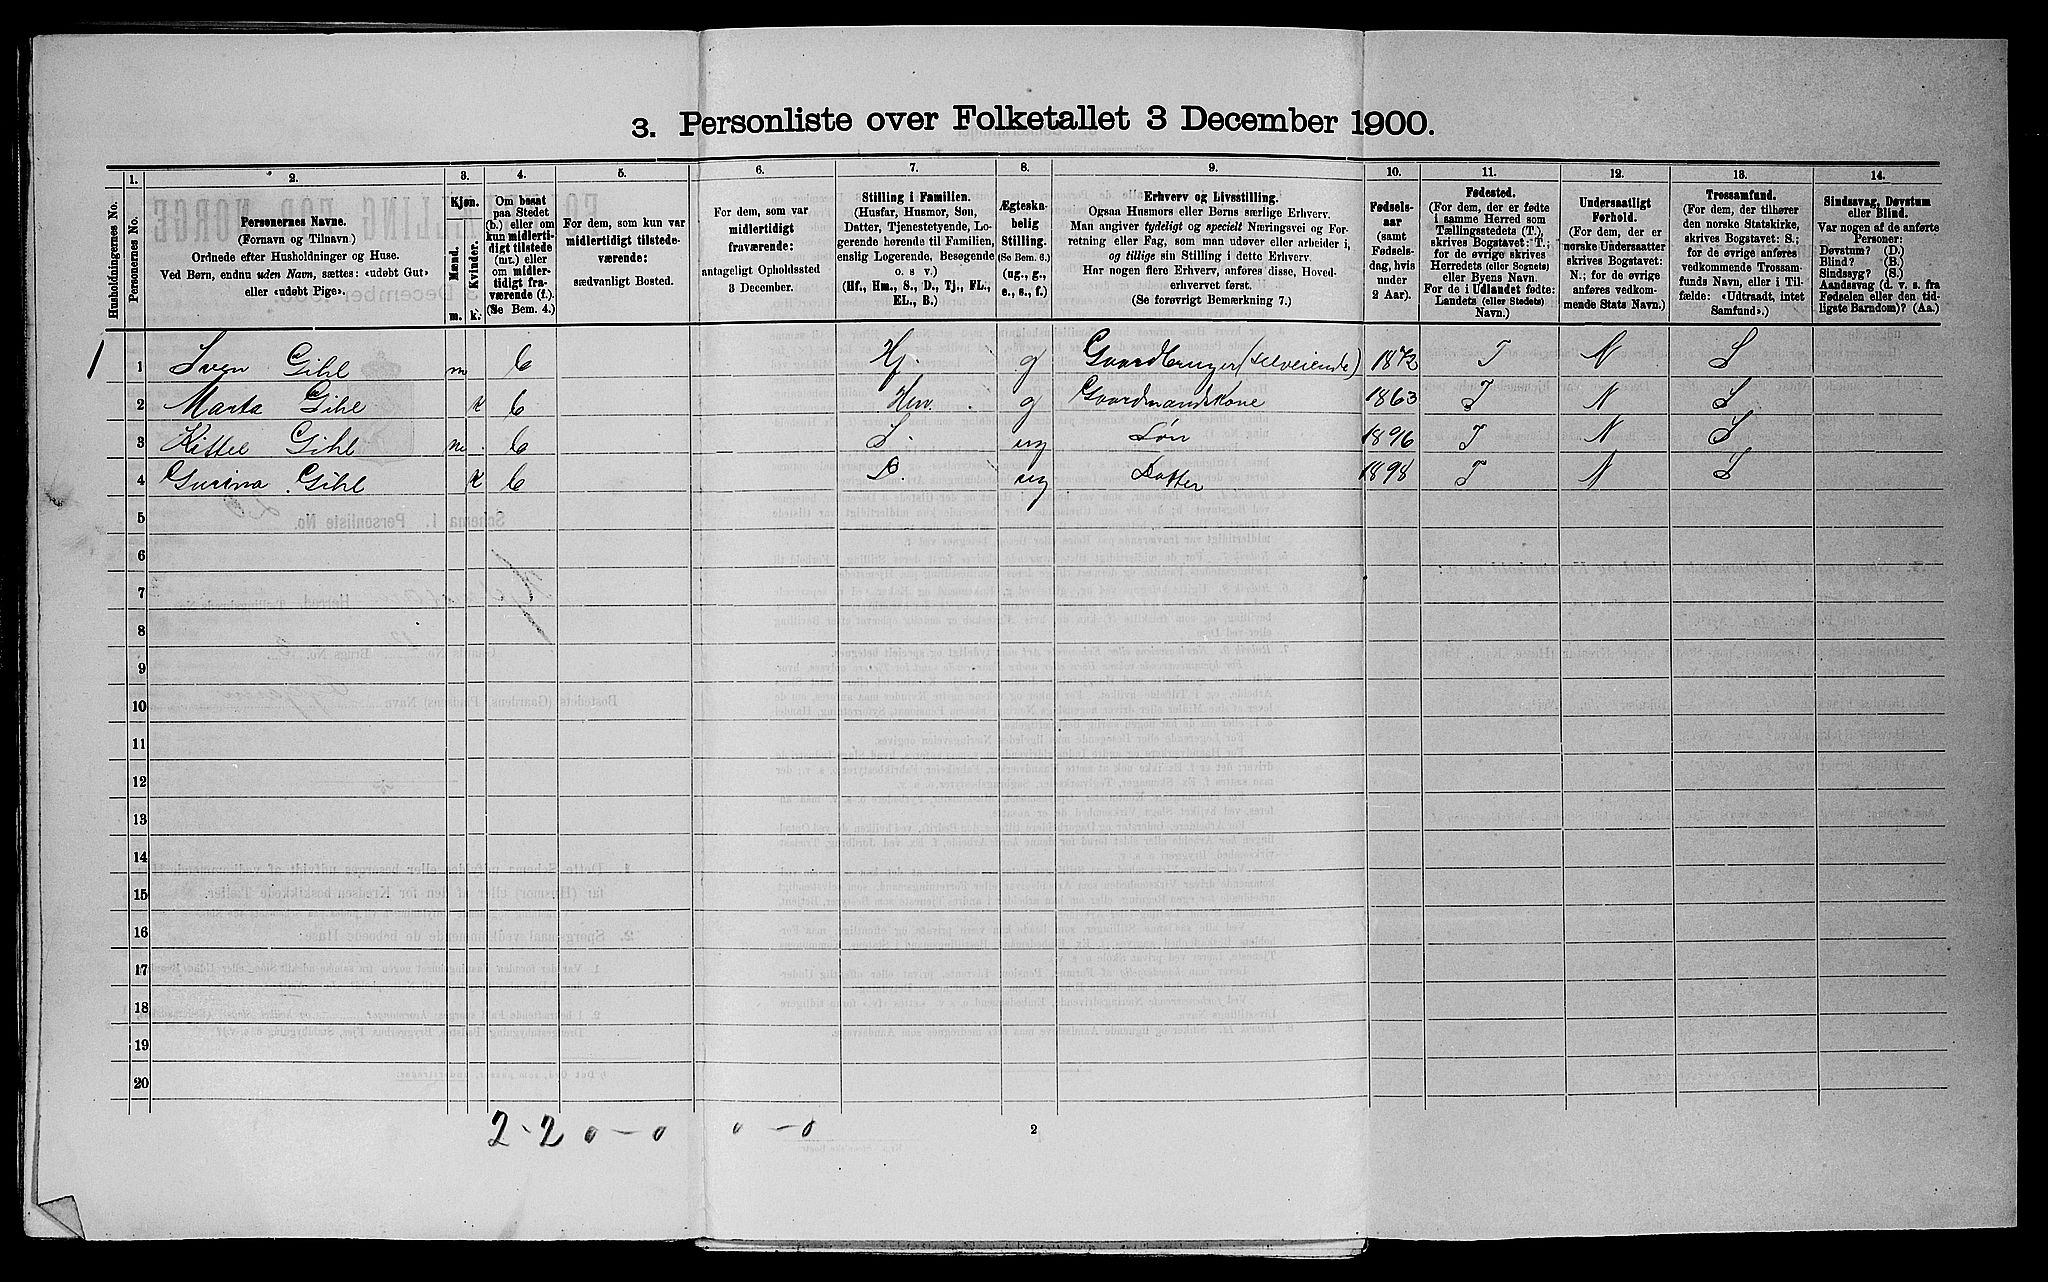 3. Personliste over Folketallet 3 December 1900.
Husholdningernes No.
1.
Personernes No.
2.
Personernes Navne.
(Fornavn og Tilnavn.)
Ordnede efter Husholdninger og Huse.
Ved Børn, endnu uden Navn, sættes: «udøbt Gut»
eller «udøbt Pige».
3.
Kjøn.
Mænd.
Kvinder.
m.
k.
4.
Om bosat
paa Stedet
(b.) eller om
kun midlerti-
digt tilstede
(mt.) eller
om midler-
tidigt fra-
værende (f.).
(Se Bem. 4.)
5.
For dem, som kun var
midlertidigt tilstede-
værende:
sædvanligt Bosted.
6.
For dem, som var
midlertidigt
fraværende:
antageligt Opholdssted
3 December.
7.
Stilling i Familien.
(Husfar, Husmor, Søn,
Datter, Tjenestetyende, Lo-
gerende hørende til Familien,
enslig Logerende, Besøgende
o. s v.)
(Hf., Hm., S., D., Tj., FL.,
EL., B.)
8.
Ægteska-
belig
Stilling.
(Se Bem. 6.)
(ug., g.,
e., s., f.)
9.
Erhverv og Livsstilling.
Ogsaa Husmors eller Børns særlige Erhverv.
Man angiver tydeligt og specielt Næringsvei og For-
retning eller Fag, som man udøver eller arbeider i,
og tillige sin Stilling i dette Erhverv.
Har nogen flere Erhverv, anføres disse, Hoved-
erhvervet først.
(Se forøvrigt Bemærkning 7.)
10.
Fødsels-
aar
(samt
Fødsels-
dag, hvis
under
2 Aar).
11.
Fødested.
(For dem, der er fødte
i samme Herred som
Tællingsstedets (T.),
skrives Bogstavet: T.;
for de øvrige skrives
Herredets (eller Sognets)
eller Byens Navn.
For de i Udlandet fødte:
Landets (eller Stedets)
Navn.)
12.
Undersaatligt
Forhold.
(For dem, der er
norske Undersaatter
skrives Bogstavet:
N.; for de øvrige
anføres vedkom-
mende Stats Navn.)
13.
Trossamfund.
(For dem, der tilhører
den norske Statskirke,
skrives Bogstavet: S.;
for de øvrige anføres
vedkommende Trossam-
funds Navn, eller i Til-
fælde: «Udtraadt, intet
Samfund».)
14.
Sindssvag, Døvstum
eller Blind.
Var nogen af de anførte
Personer:
Døvstum? (D.)
Blind? (B.)
Sindssyg? (S.)
Aandssvag (d. v. s. fra
Fødselen eller den tid-
ligste Barndom)? (Aa.)
1 1 Sven Gihl m b Hf. g Gaardbruger (selveiende) 1872 T N S
2 Marta Gihl k b Hm. g Gaardmandskone 1863 T N S
3 Kittel Gihl m. b S. ug Søn 1896 T N S
4 Gurina Gihl k b D. ug Datter 1898 T N S
5
6
7
8
9
10
11
12
13
14
15
16
17
18
19
20
2-2 0-0 0-0
2